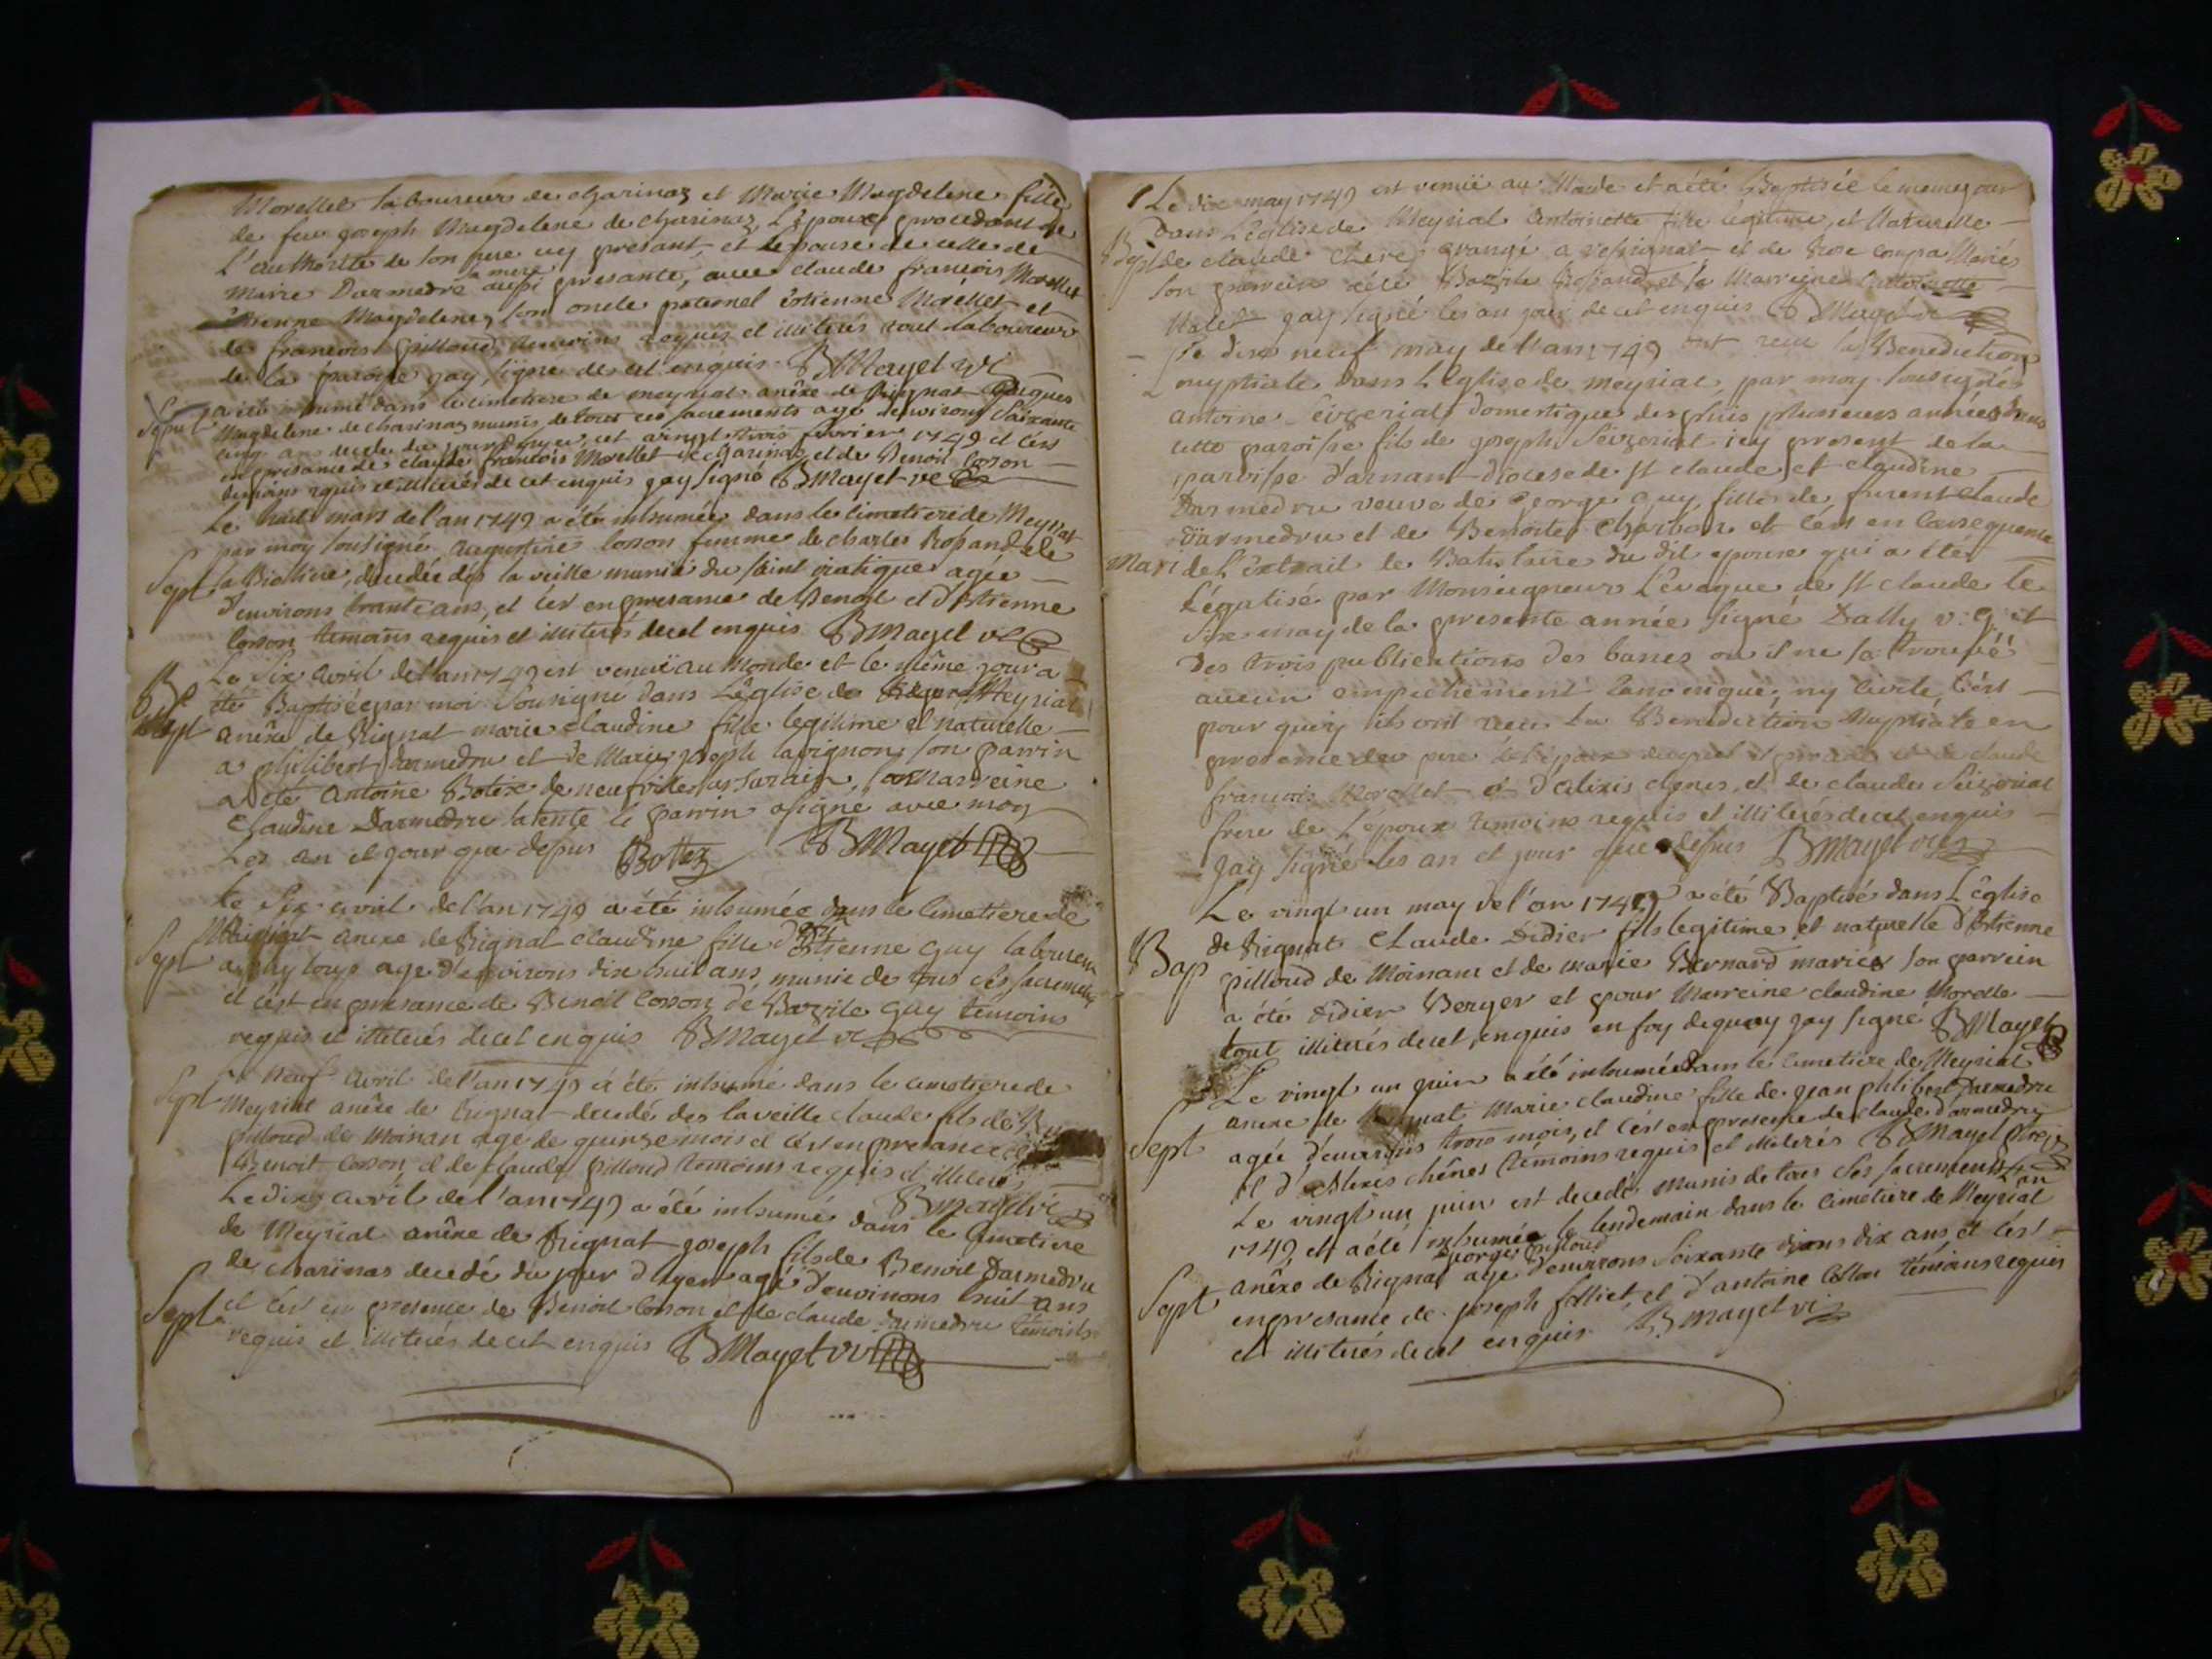 Morellet laboureur de charinaz et Marie Magdelene fille
de feu joseph Magdelene de charinaz, L'époux procedant de
L'authorité de son pere icy présant, et l'epouse de celle de
Marie Darmedru sa mere aussi presante, avec claude françois Morellet
étienne Magdelene, son oncle paternel étienne Morellet et
de françois pilloud, temoins requis et illiterés tout laboureurs
de la paroise jay signé de cet enquis BMayet vi
Sepult a été inhumé dans le cimetiere de meyriat anêxe de Rignat
Magdelene de charinaz munis de tous ces sacrements agé denvirons soixante
cinq ans decedé du jour d'hyer cet vingt trois fevrier 1749 et c'est
en presance de claude françois Morellet de charinaz et de Benoit Cosson
temoins requis et illiterés de cet enquis jay signé BMayet ve
Le huit mars de l'an 1749 a été inhumée dans le cimetiere de Meyriat
par moy sousigné Augustine Cosson femme de charles Ropand de
Sept la Biolliere, decedée dès la veille munie du saint viatique agée
d'environs trante ans, et c'est en presance de Benoit et d'étienne
Cosson temoins requis et illiterés de cet enquis BMayet ve
Le Six avril de l'an 1749 est venuë au Monde et le même jour a
été Baptisée par moi Sousigné dans L'église de Meyriat
Bapt anêxe de Rignat marie claudine fille legitime et naturelle
a philibert Darmedru et de Marie joseph lavignon, son parrin
a été Antoine Botex de neufville sur Surain, sa Marreine
Claudine Darmedru la tente le parrin a signé avec moy
Les an et jour que dessus Bottex BMayet
Le Six avril de l'an 1749 a été inhumée dans le cimetiere de
Meiriat anexe de Rignat claudine fille d'Etienne Guy laboureur
Sept a agé d'environs dix huit ans, munie de tous ces sacrements
et c'est en presance de Benoit Cosson, de Bazile Guy temoins
requis et illiterés de cet enquis BMayet vi
Sept Le neuf avril de l'an 1749 a été inhumé dans le cimetiere de
Meyriat anêxe de Rignat decedé des la veille claude fils de
pilloud de Moinan agé de quinze mois et c'est en presance de
Benoit Cosson et de claude pilloud temoins requis et illiterés
BMayet vi
Le dix avril de l'an 1749 a été inhumé dans le cimetiere
de Meyriat anêxe de Rignat joseph fils de Benoit Darmedru
de charinas decedé du jour d'hyer agé d'environs huit ans
Sept et c'est en presence de Benoit Cosson et de claude Darmedru temoins
requis et illiterés de cet enquis BMayet vi
Le dix may 1749 est venuë au Monde et a été Baptisée le meme jour
dans L'église de Meyriat Antoinette fille legitime, et Naturelle
Bapt de claude Chêne grangé a et de Rose compa Mariés
son parrein a été Bazile Ropand, et sa Marreine Antoinette
jay signé les an jour de cet enquis BMayet vi
Le dix neuf may de l'an 1749 ont recu la Benediction
nuptiale dans L'église de meyriat, par moy sousigné
antoine Seizeriat domestique des puis plusieurs années dans
cette paroisse fils de joseph Seizeriat icy present de la
paroisse d'arnant diocese de st claude, et claudine
Darmedru veuve de george Guy, fille de furent claude
Darmedru et de Benoite charbon et c'est en Consequence
Mari de l'extrait le Batistaire du dit epoux qui a été
Légalisé par Monseigneur L'évêque de st claude le
Six may de la presente année signé Dally v: g: et
des trois publications des bancs ou il ne sa trouvé
aucun empechement canonique, ny civile, c'est
pour quoy ils ont recu la Benediction Nuptiale en
presence du pere de l'époux et de claude
françois Morellet et d'Alexis chenes, et de claude Seizeriat
frere de L'époux temoins requis et illiterés de cet enquis
jay signé les an et jour que dessus BMayet vi
Le vingt un may de l'an 1749 a été Baptisé dans L'église
de Rignat Claude Didier fils legitime et naturelle d'étienne
Bap pilloud de Moinans et de marie Bernard mariés son parrein
a été Didier Berger et pour Marreine claudine Morelle
tout illiterés de cet enquis en foy de quoy jay signé BMayet
Le vingt un juin a été inhumée dans le cimetiere de Meyriat
anexe de Rignat Marie claudine fille de jean philibert Darmedru
Sept agée d'environs trois mois, et c'est en presence de claude darmedru
et d'Alexis chênes temoins requis et illiterés BMayet
Le vingt un juin est decedé munis de tous ses sacrements L'an
1749 et a été inhumé le lendemain dans le cimetiere de Meyriat
georges pilloud
anêxe de Rignat agé d'environs Soixante dix ans, et c'est
Sept en presance de joseph folliet, et d'antoine Cosson temoins requis
et illiterés de cet enquis BMayet vi